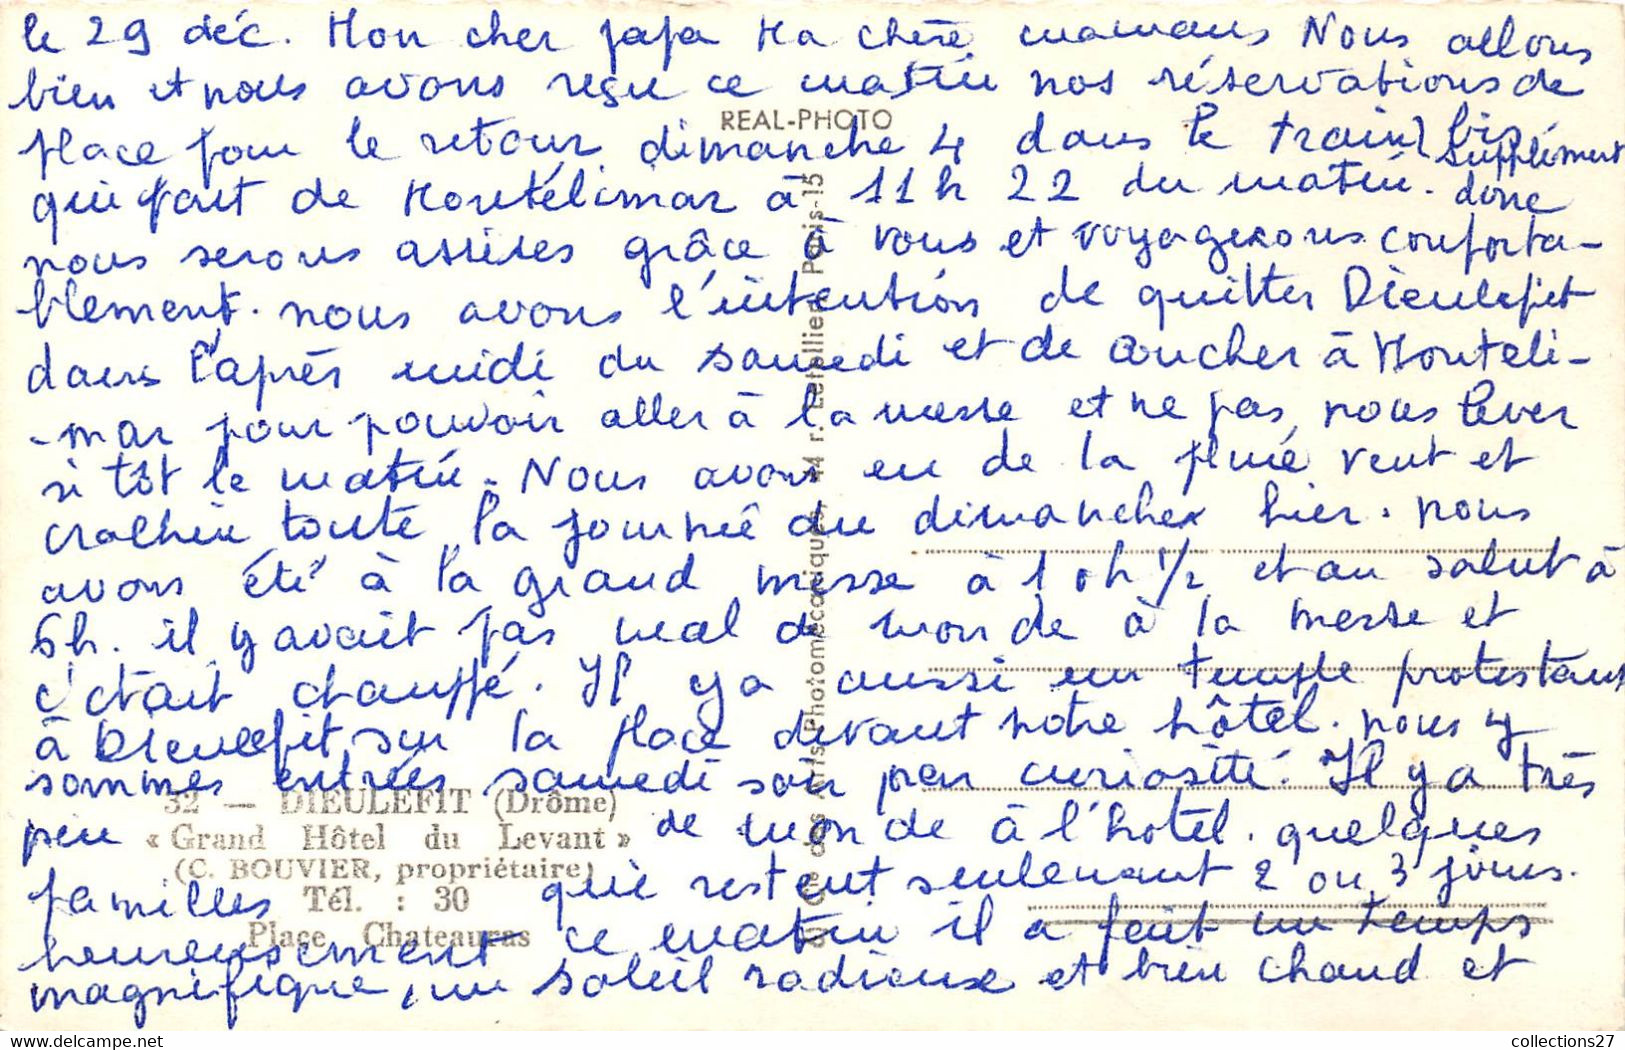 le 29 déc. Mon cher papa Ma chère maman Nous allons
bien et nous avons reçu ce matin nos réservations de
REAL-PHOTO
place pour le retour dimanche 4 dans le train bis supplément
qui part de Montélimar à 11h 22 du matin. donc
nous serons assises grâce à vous et voyagerons conforta-
blement. nous avons l'intention de quitter Dieulefit
dans l'après midi du samedi et de coucher à Monteli-
-mar pour pouvoir aller à la messe et ne pas nous lever
si tôt le matin. Nous avons eu de la pluie vent et
crachin toute la journée du dimanche hier. nous
avons été à la grand messe à 10h 1/2 et au salut à
6h. il y avait pas mal de monde à la messe et
c'était chauffé. Il y a aussi un temple protestant
à Dieulefit, sur la place devant notre hôtel. nous y
sommes entrées samedi soir par curiosité. Il y a très
peu de monde à l'hotel. quelques
familles qui restent seulement 2 ou 3 jours.
heureusement ce matin il a fait un temps
magnifique, un soleil radieux et bien chaud et
32 — DIEULEFIT (Drôme)
« Grand Hôtel du Levant »
(C. BOUVIER, propriétaire)
Tél. : 30
Place Chateauras
des Arts Photomécaniques, 44 r. Letellier, Paris-15
collections27